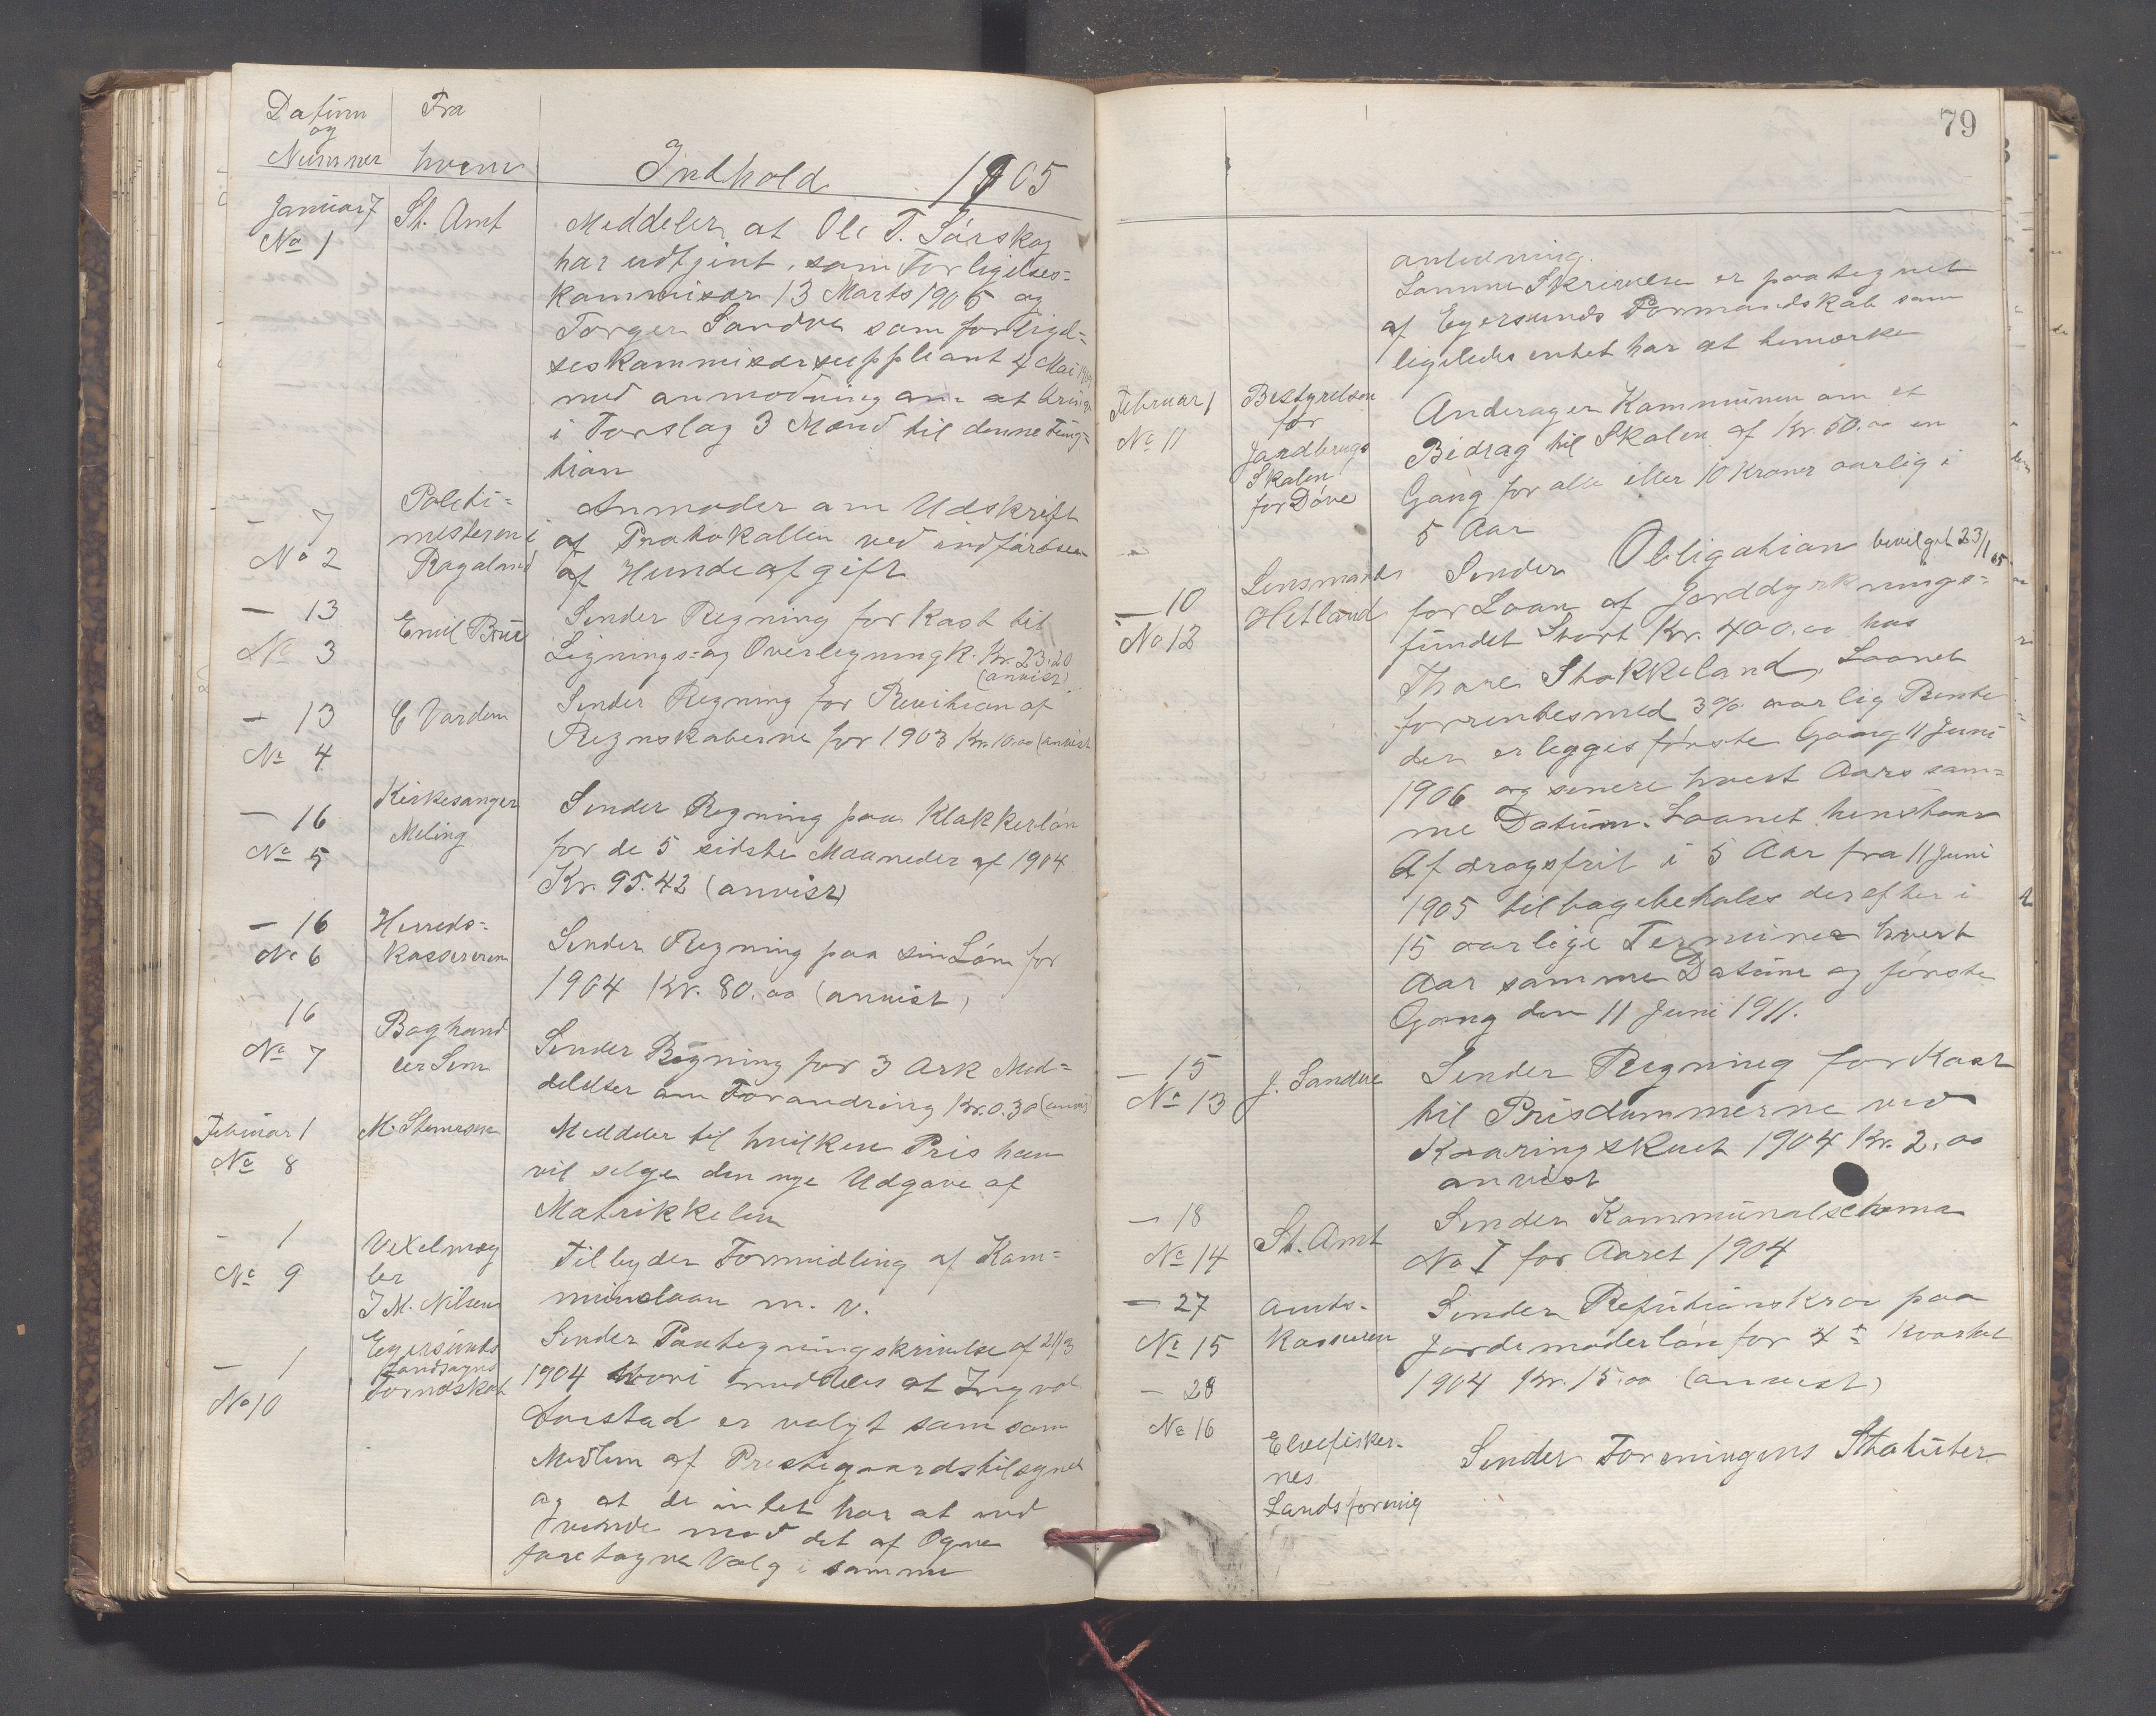 Datum og Nummer
Fra hvem
Indhold 1905
Januar 7
No 1
St. Amt
Meddeler at Ole T. Sørskog
har udtjent som Forligelses=
kommisær 13 Marts 1905 og
Torger Sandve som forligel=
seskommisærsuppleant 4 Mai
med anmodning om at bringe
i Forslag 3 Mænd til denne Fung=
tion
— 7
No 2
Politi=
mesteren i
Rogaland
Anmoder om Udskrift
af Protokollen ved indførelsen
af Hundeafgift
— 13
No 3
Emil Brue
Sender Regning for Kost til
Ligning= og Overligningk. Kr. 23.20
(anvist)
— 13
No 4
E Varden
Sender Regning for Revition af
Regnskaberne for 1903 Kr. 10.00 (anvist
— 16
No 5
Kirkesanger
Meling
Sender Regning paa Klokkerløn
for de 5 sidste Maaneder af 1904
Kr. 95.42 (anvist)
— 16
No 6
Herreds=
kassereren
Sender Regning paa sin Løn for
1904 Kr. 80.00 (anvist)
16
No 7
Boghand
ler Sem
Sender Regning for 3 Ark Med=
delelser om Forandring Kr. 0.30
Februar 1
No 8
Meddeler til hvilken Pris han
vil selge den nye Udgave af
Matrikkelen
— 1
No 9
Vexelmæg
ler
J M. Nilsen
Tilbyder Formidling af Kom=
munelaan m. v.
— 1
No 10
Egersunds
Landsogns
Formdskab
Sender Paategningskrivelse af 21/3
1904 hvori meddeles at Ingvol
er valgt som som
Medlem af Prestegaardstilsynet
og at de intet har at ind
vende mod det af Ogna
foretagne Valg i samme
79
anledning.
Samme Skrivelse er paategnet
af Egersunds Formandskab som
ligeledes intet har at bemærke
Februar 1
No 11
Bestyrelsen
for
Jordbrugs
Skolen
for Døve
Anderager Kommunen om et
Bidrag til Skolen af Kr. 50.00 en
Gang for alle eller 10 Kroner aarlig i
5 Aar
— 10
No 12
Lensmand
Hetland
Sender Obligation bevilget 23/1 05
for Laan af Jorddyrknings=
fundet Stort Kr. 400.00 hos
Thore Stokkeland. Laanet
forrentes med 3% aarlig Rente
der erlegges første Gang 11 Juni
1906 og senere hvert Aars sam=
me Datum. Laanet henstaar
Afdragsfrit i 5 Aar fra 11 Juni
1905 tilbagebetales derefter i
15 aarlige Terminer hvert
Aar samme Datum og første
Gang den 11 Juni 1911.
— 15
No 13
J. Sandve
Sender Regning for Kost
til Prisdommerne ved
Kaaringskuet 1904 Kr. 2.00
anvist
— 18
No 14
St. Amt
Sender Kommunalschema
No I for Aaret 1904
— 27
No 15
Amts-
kasseren
Sender Refutionskrav paa
Jordemoderløn for 4de Kvartal
1904 Kr. 15.00 (anvist)
— 28
No 16
Elvefisker-
nes
Landsforenig
Sender Foreningens Statuter